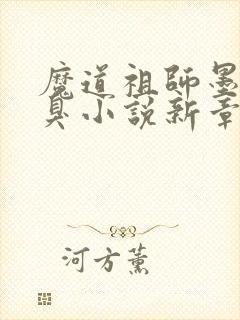 魔道祖師墨
臭小說新章
河方薰